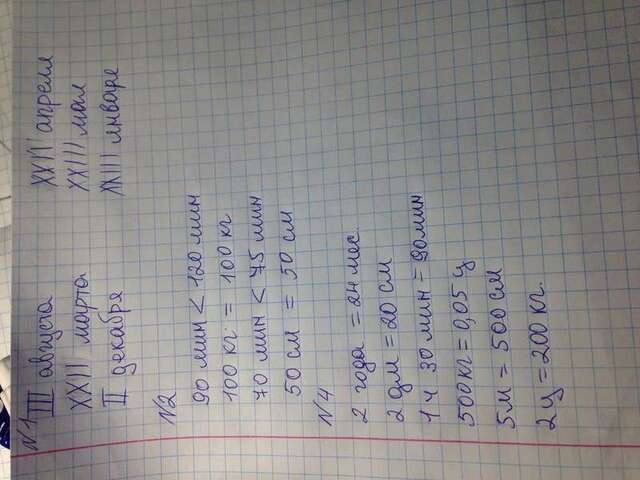 N1
III августа XXII апреля
XXII марта XXIII мая
II декабря XXIII январе
N2
90 мин < 120 мин
100 кг = 100 кг
70 мин < 75 мин
50 см = 50 см
N4
2 года = 24 мес.
2 дм = 20 см
1 ч 30 мин = 90мин
500кг = 0,05 ц
5м = 500 см
2ц = 200 кг.